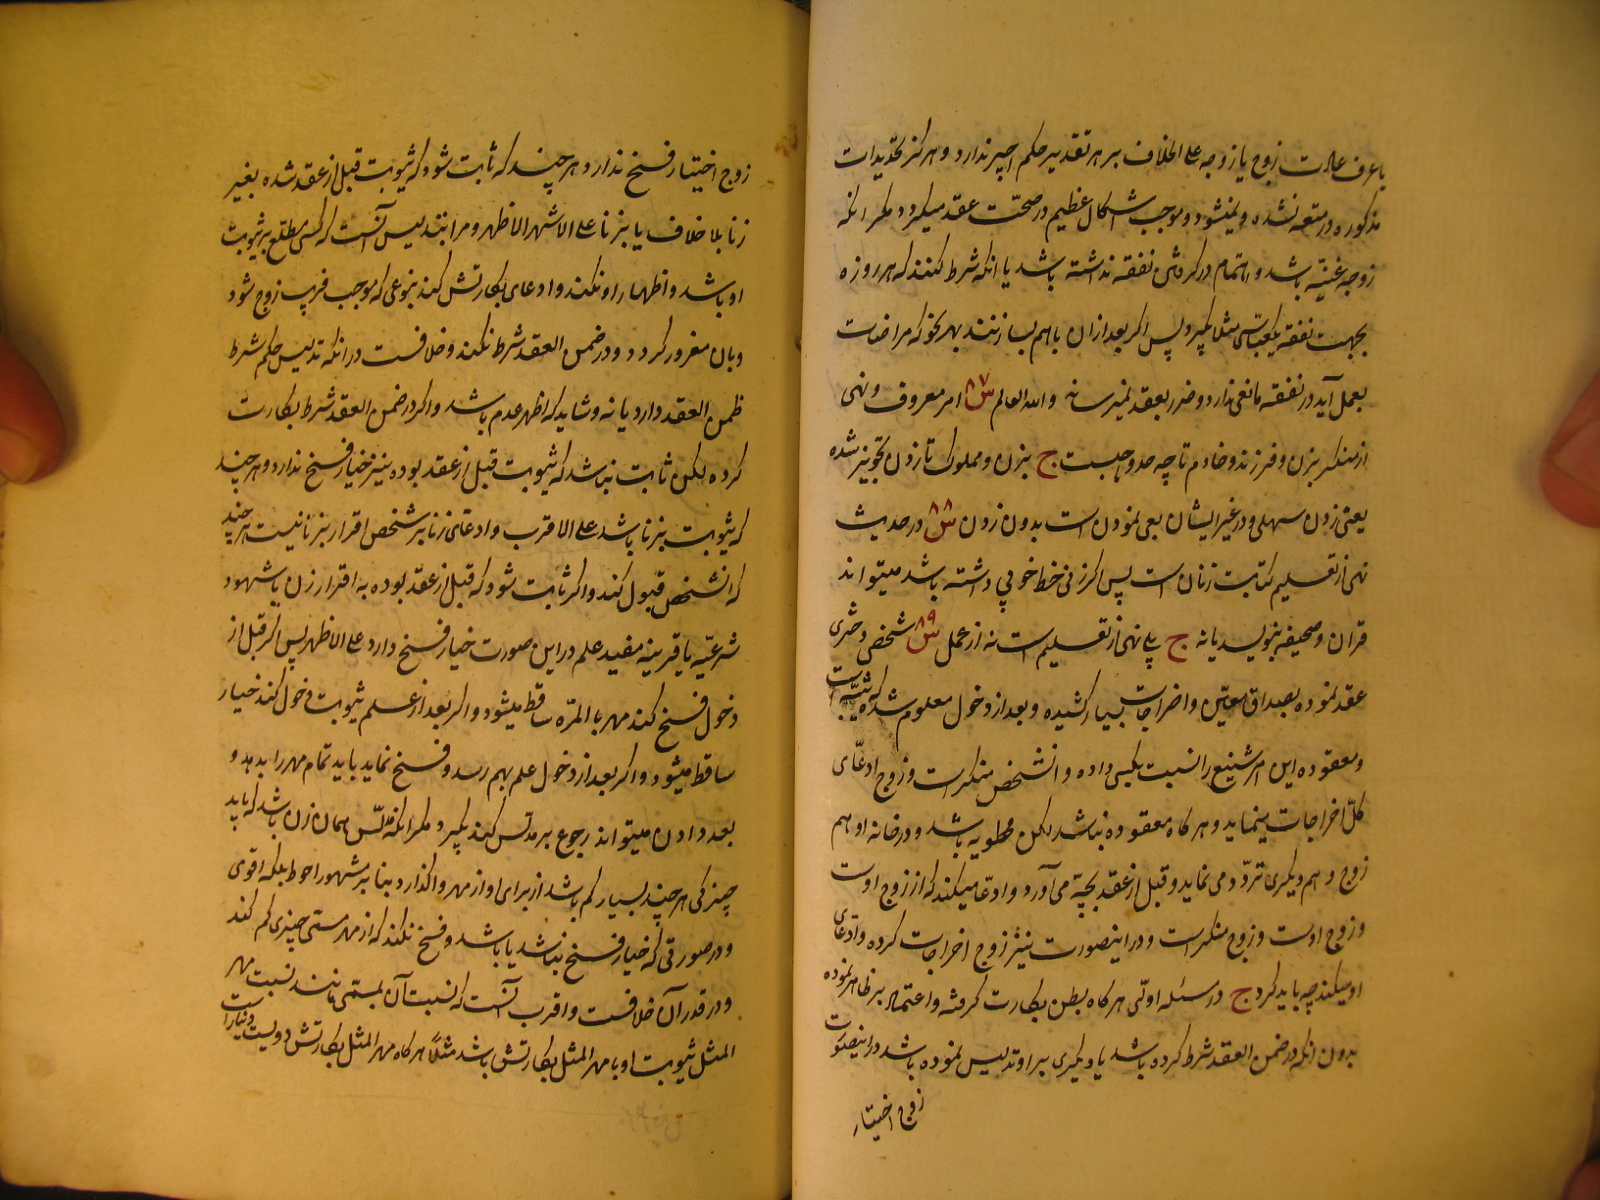 با عرف عادت زوج یا زوجه علی الخلاف بر هر تقدیر حکم اجیر ندارد و هرگز تحدیدات
مذکوره در متعه نشده و نمیشود و موجب اشکال عظیم در صحّت عقد میکردد مکر انکه
زوجه غنیّه باشد و اهتمام در کرفتن نفقه نداشته باشد یا انکه شرط کنند که هر روزه
بجهت نفقه یکعبّاسی مثلا بکیرد پس اکر بعد از ان باهم بسازنند بهر نحو که مراضات
بعمل آید در نفقه مانعی ندارد و ضرر بعقد نمیرساند والله العالم س ۸۷ امر معروف و نهی
از منکر بزن و فرزند و خادم تا چه حد واجبست ج بزن و مملوک تا زدن تجویز شده
یعنی زدن سهلی و در غیر ایشان سعی نمودن است بدون زدن س ۸۸ در حدیث
نهی از تعلیم کتابت زنان است پس اکر زنی خط خوبی داشته باشد میتواند
قران و صحیفه بنویسد یا نه ج بلی نهی از تعلیم است نه از عمل س ۸۹ شخصی دختری
عقد نموده بصداق معیّن و اخراجات بسیار کشیده و بعد از دخول معلوم شده که ثیّبه است
و معقوده این امر شنیع را نسبت بکسی داده و انشخص منکر است و زوج ادعّای
کلّ اخراجات مینماید و هر کاه معقوده نباشد لکن مخطوبه باشد و در خانه او هم
زوج و هم دیکری تردّد می نماید و قبل از عقد بچّه می آورد و ادعّا میکند که از زوج اوست
و زوج اوست و زوج منکر است و در اینصورت نیز زوج اخراجات کرده و ادعّای
او میکند چه باید کرد ج در مسئله اولی هر کاه بظن بکارت کرفته و اعتماد بر ظاهر نموده
بدون انکه در ضمن العقد شرط کرده باشد یا دیکری بر او تدلیس نموده باشد در اینصورت
زوج اختیار
زوج اختیار فسخ ندارد هر چند که ثابت شود که ثیوبت قبل از عقد شده بغیر
زنا بلا خلاف یا بزنا علی الاشهر الاظهر و مراد بتدلیس آنست که کسی مطّلع بر ثیوبت
او باشد و اظهار او نکند و ادعای بکارتش کند بنوعی که موجب فریب زوج شود
و بان مغرور کردد و در ضمن العقد شرط نکند و خلافست در انکه تدلیس حکم شرط
ضمن العقد دارد یا نه و شاید که اظهر عدم باشد و اکر در ضمن العقد شرط بکارت
کرده لکن ثابت نباشد که ثیوبت قبل از عقد بوده نیز خیار فسخ ندارد و هر چند
که ثیوبت بزنا باشد علی الاقرب و ادعّای زنا بر شخص اقرار بزنا نیست هر چند
که انشخص قبول کند و اکر ثابت شود که قبل از عقد بوده به اقرار زن یا شهود
شرعیّه یا قرینه مفید علم در این صورت خیار فسخ دارد علی الاظهر پس اکر قبل از
دخول فسخ کند مهر بالمرّه ساقط میشود و اکر بعد از علم ثیوبت دخول کند خیار
ساقط میشود و اکر بعد از دخول علم بهم رسد و فسخ نماید باید تمام مهر را بدهد و
بعد دادن میتواند رجوع بر مدلّس کند بکیرد مکر انکه مدلّس همان زن باشد که باید
چیزکی هر چند بسیار کم باشد از برای او از مهر واکذارد بنا بر مشهور احوط بلکه اقوی
و در صورتی که خیار فسخ نباشد یا باشد و فسخ نکند که از مهر مسمّی چیزی کم کند
و در قدر آن خلافست و اقرب آنست که نسبت آن بمسمّی مانند نسبت مهر
المثل ثیوبت او با مهر المثل بکارتش باشد مثلاً هر کاه مهر المثل بکارتش دویست دینار است